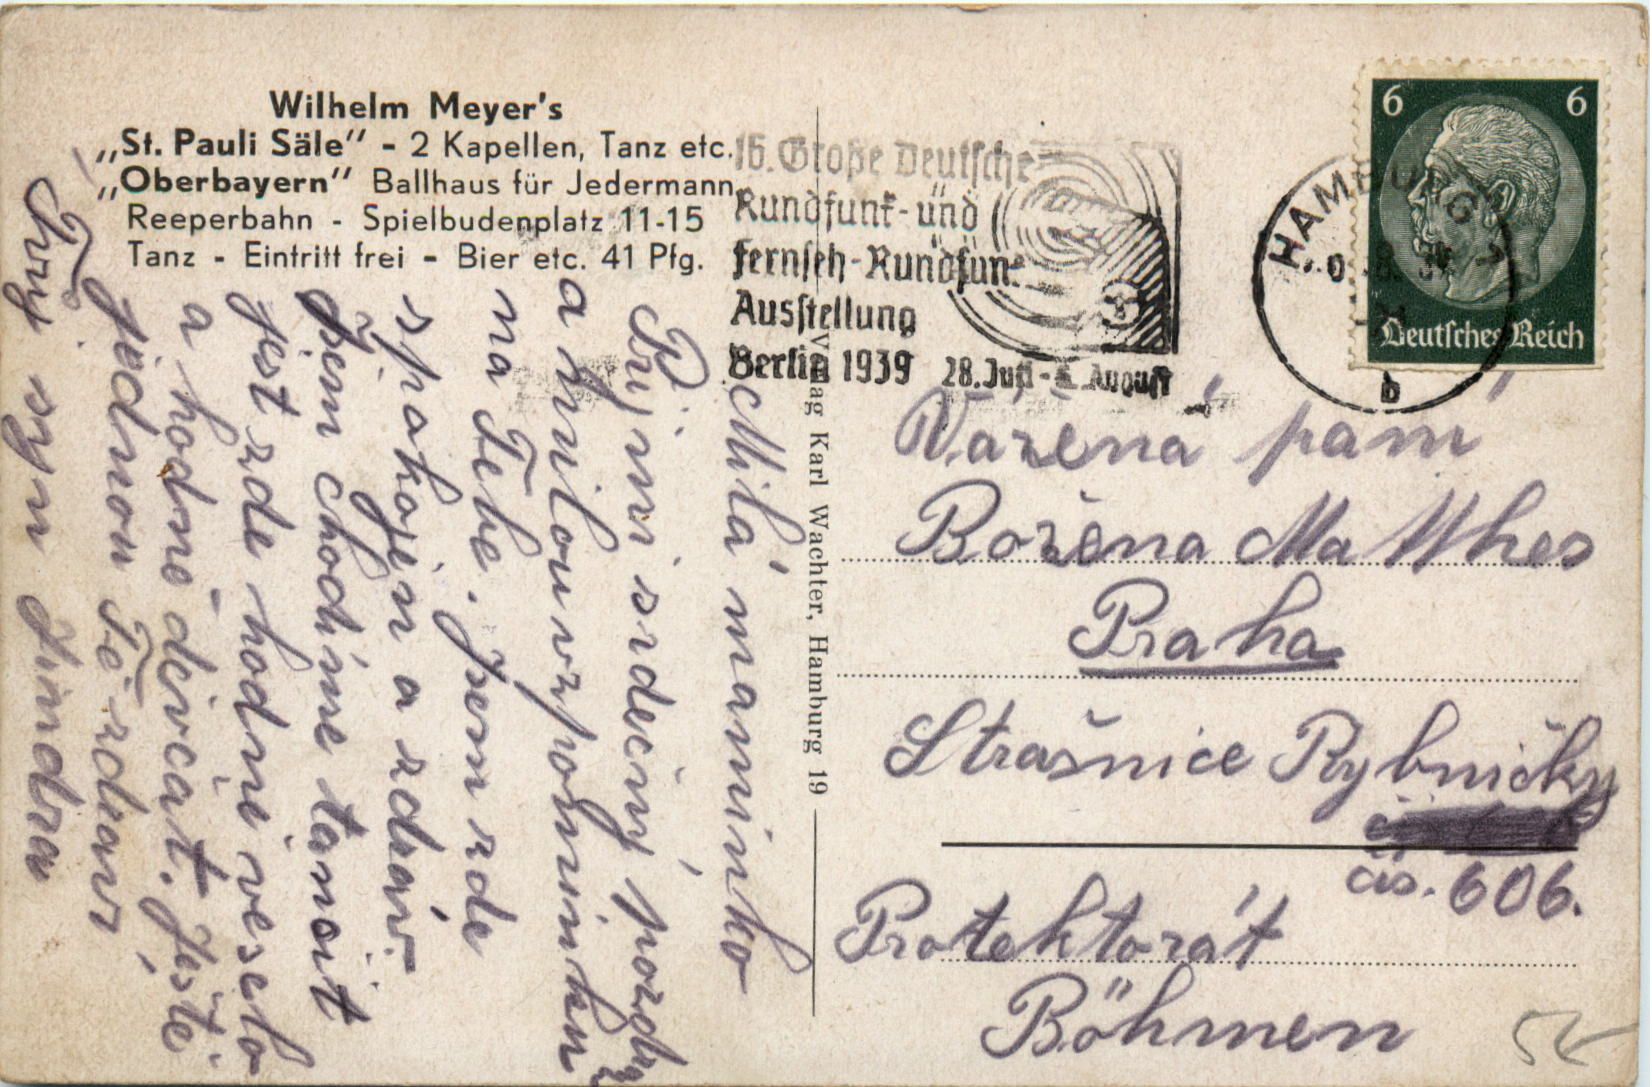 Wilhelm Meyer's
„St. Pauli Säle" - 2 Kapellen, Tanz etc.
„Oberbayern" Ballhaus für Jedermann
Reeperbahn - Spielbudenplatz 11-15
Tanz - Eintritt frei - Bier etc. 41 Pfg.
Milá maminko
Přijmi srdečný pozdrav
a milou vzpomínku
na Tebe. Jsem zde
spokojen a zdráv.
Jsem chodíme tancit
jest zde hodně veselo
a hodně děvčat. Ještě
jednou Tě zdraví
Tvůj syn Jindra
Verlag Karl Wachter, Hamburg 19
16. Große Deutsche
Rundfunk- und
Fernseh-Rundfunk
Ausstellung
Berlin 1939 28. Juli - 6. August
HAMBURG 1
b
6 6
Deutsches Reich
Vážená paní
Božena Matthes
Praha
Strašnice Rybničky
čís. 606.
Protektorát
Böhmen